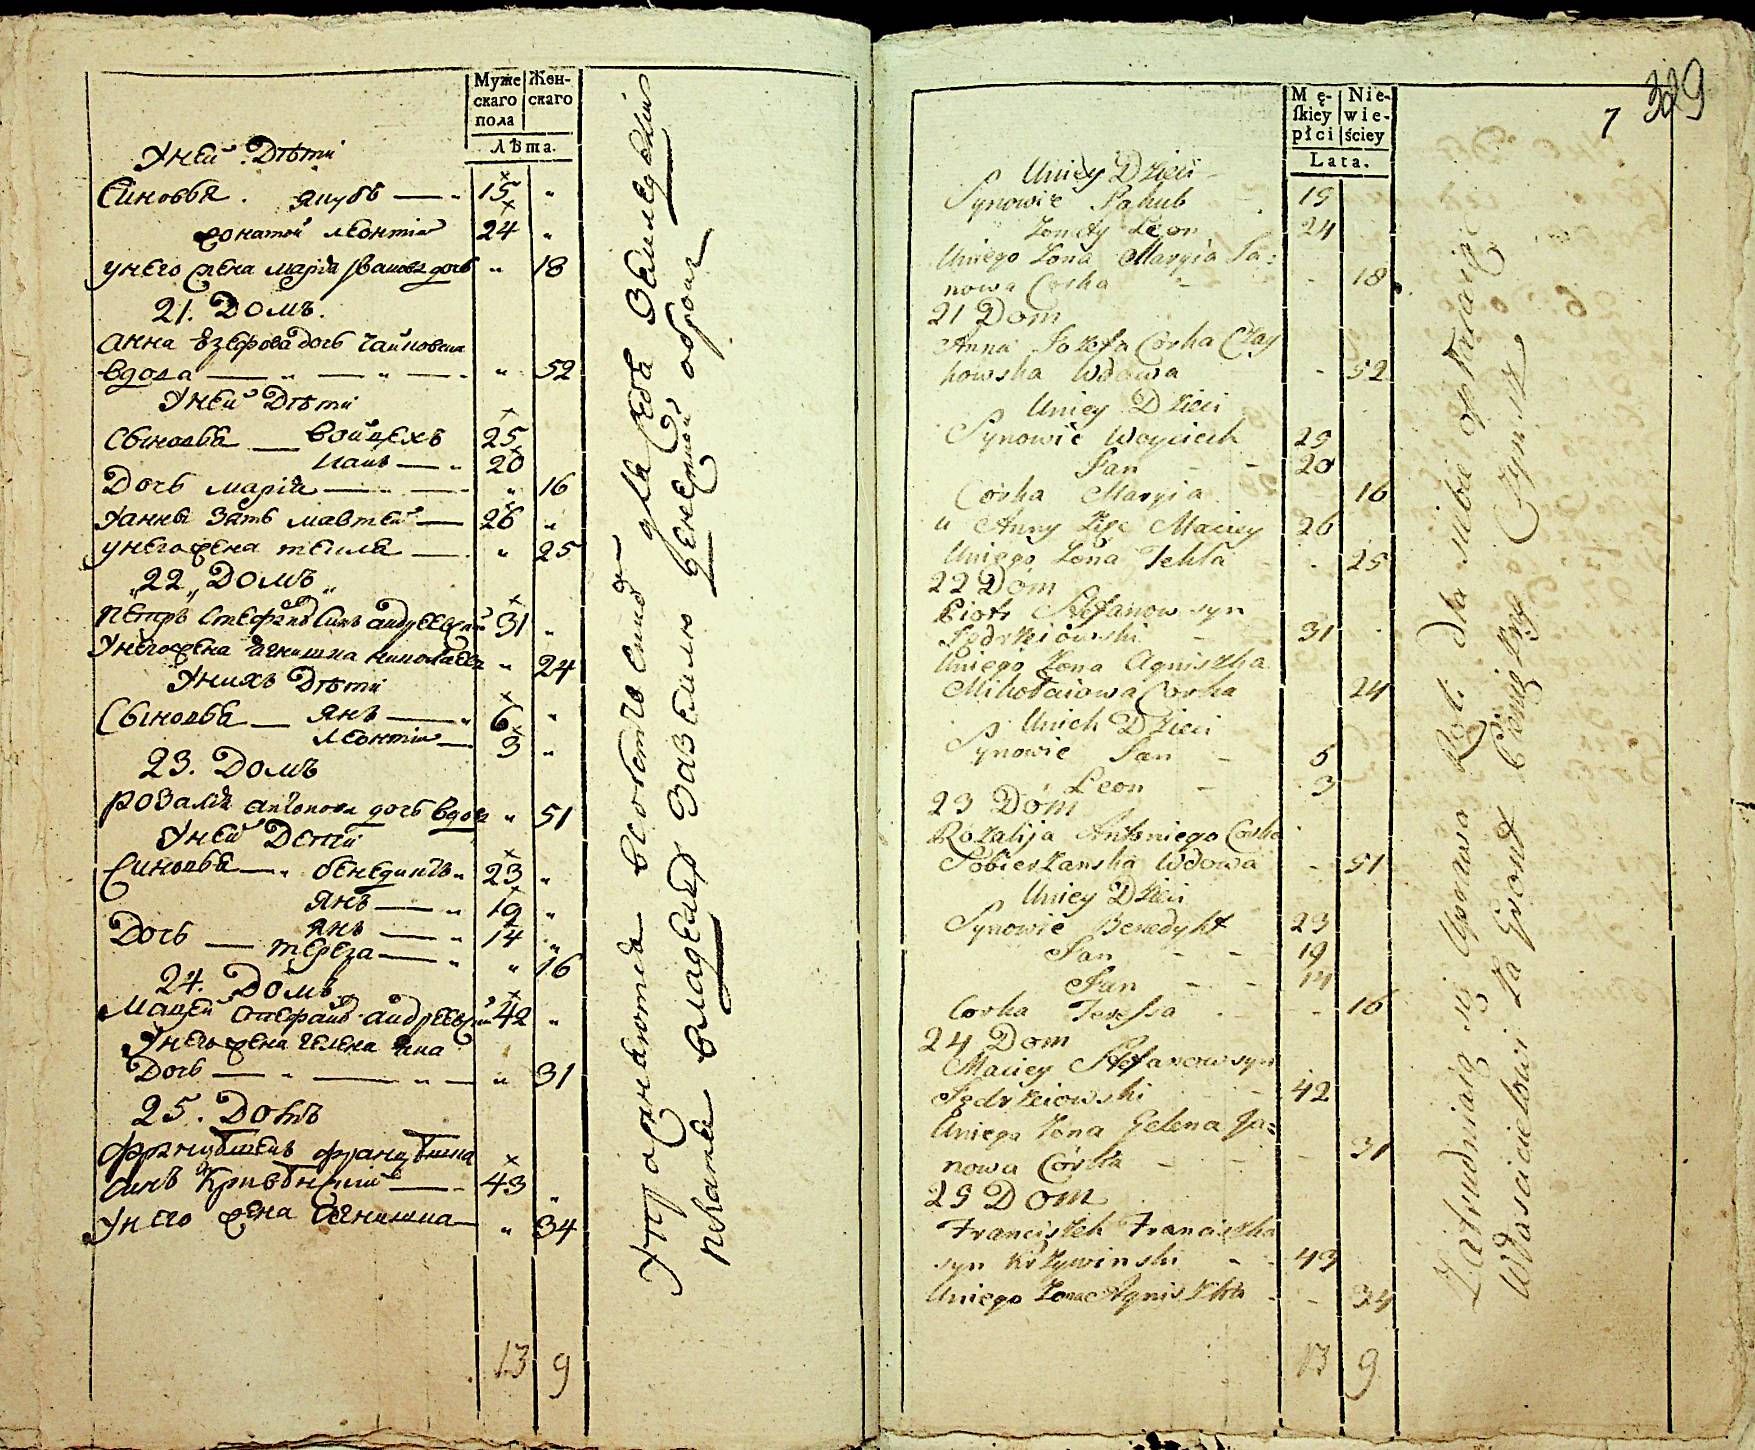 Муже
скаго
пола
Жен-
скаго
Лѣта.
У ней Дѣти
Синовья. Якубъ — 15 "
Жонатой Леонтій 24 "
у него жена Марія Иванова дочь " 18
21. Домъ.
Анна Езефова дочь Чайковска
вдова — " — " — " 52
У ней Дѣти
Сыновья — Войцехъ 25
Ианъ — " 20
Дочь Марія — " — " 16
У Анны Зять Мавтей — 26 "
у него жена Текля — " 25
"22" Домъ "
Петръ Стефановъ Синъ Андреевскій 31 "
У него жена Агнишка Николаева " 24
У нихъ Дѣти
Сыновья — Янъ — " 6 "
Леонтій — 3 "
23. Домъ
Розалія Антонова дочь вдова " 51
У ней Дети
Синовья — " Бенедиктъ " 23 "
Янъ — " 19 "
Янъ — " 14 "
Дочь — Тереза — " " 16
24. Домъ
Мацей Стефановъ Андреевскій 42 "
У него жена Гелена Яна
Дочь — " — " — " 31
25. Домъ
Францишекъ Францишка
синъ Крживинскій — 43 "
У него жена Агнишка — " 34
13 9
Упражняются в собственной для себя Земледелии
пекана владельцу за землю денежной оброк
329
7
Mę-
skiey
płci
Nie-
wie-
ściey
Lata.
U niey Dzieci
Synowie Jakub 15
Zonaty Leon 24
U niego Zona Maryia Ja:
nowa Corka - - 18
21 Dom
Anna Jozefa Corka Czay
kowska Wdowa - 52
U niey Dzieci
Synowie Woyciech 25
Jan - - 20
Corka Maryia 16
u Anny Zięc Maciey 26
U niego Zona Tekla - 25
22 Dom
Piotr Stefanow syn
Jędrzeiowski - 31
U niego Zona Agniszka
Mikołaiowa Corka 24
U nich Dzieci
Synowie Jan - 6
Leon - 3
23 Dom
Rozalija Antoniego Corka
Sobierzanska Wdowa - 51
U niey Dzieci
Synowie Benedykt 23
Jan - - 19
Jan - - 14
Corka Teressa - - 16
24 Dom
Maciey Stefanow syn
Jędrzeiowski - - 42
U niego Zona Gelena Ja:
nowa Corka - - - 31
25 Dom
Franciszek Franciszka
syn Krzywinski - - 43
U niego Zona Agniszka - - 34
13 9
Zatrudniaią się Uprawą Rol: dla siebie opłacaią
Włascicielowi za Gront Pieniężny Czynsz